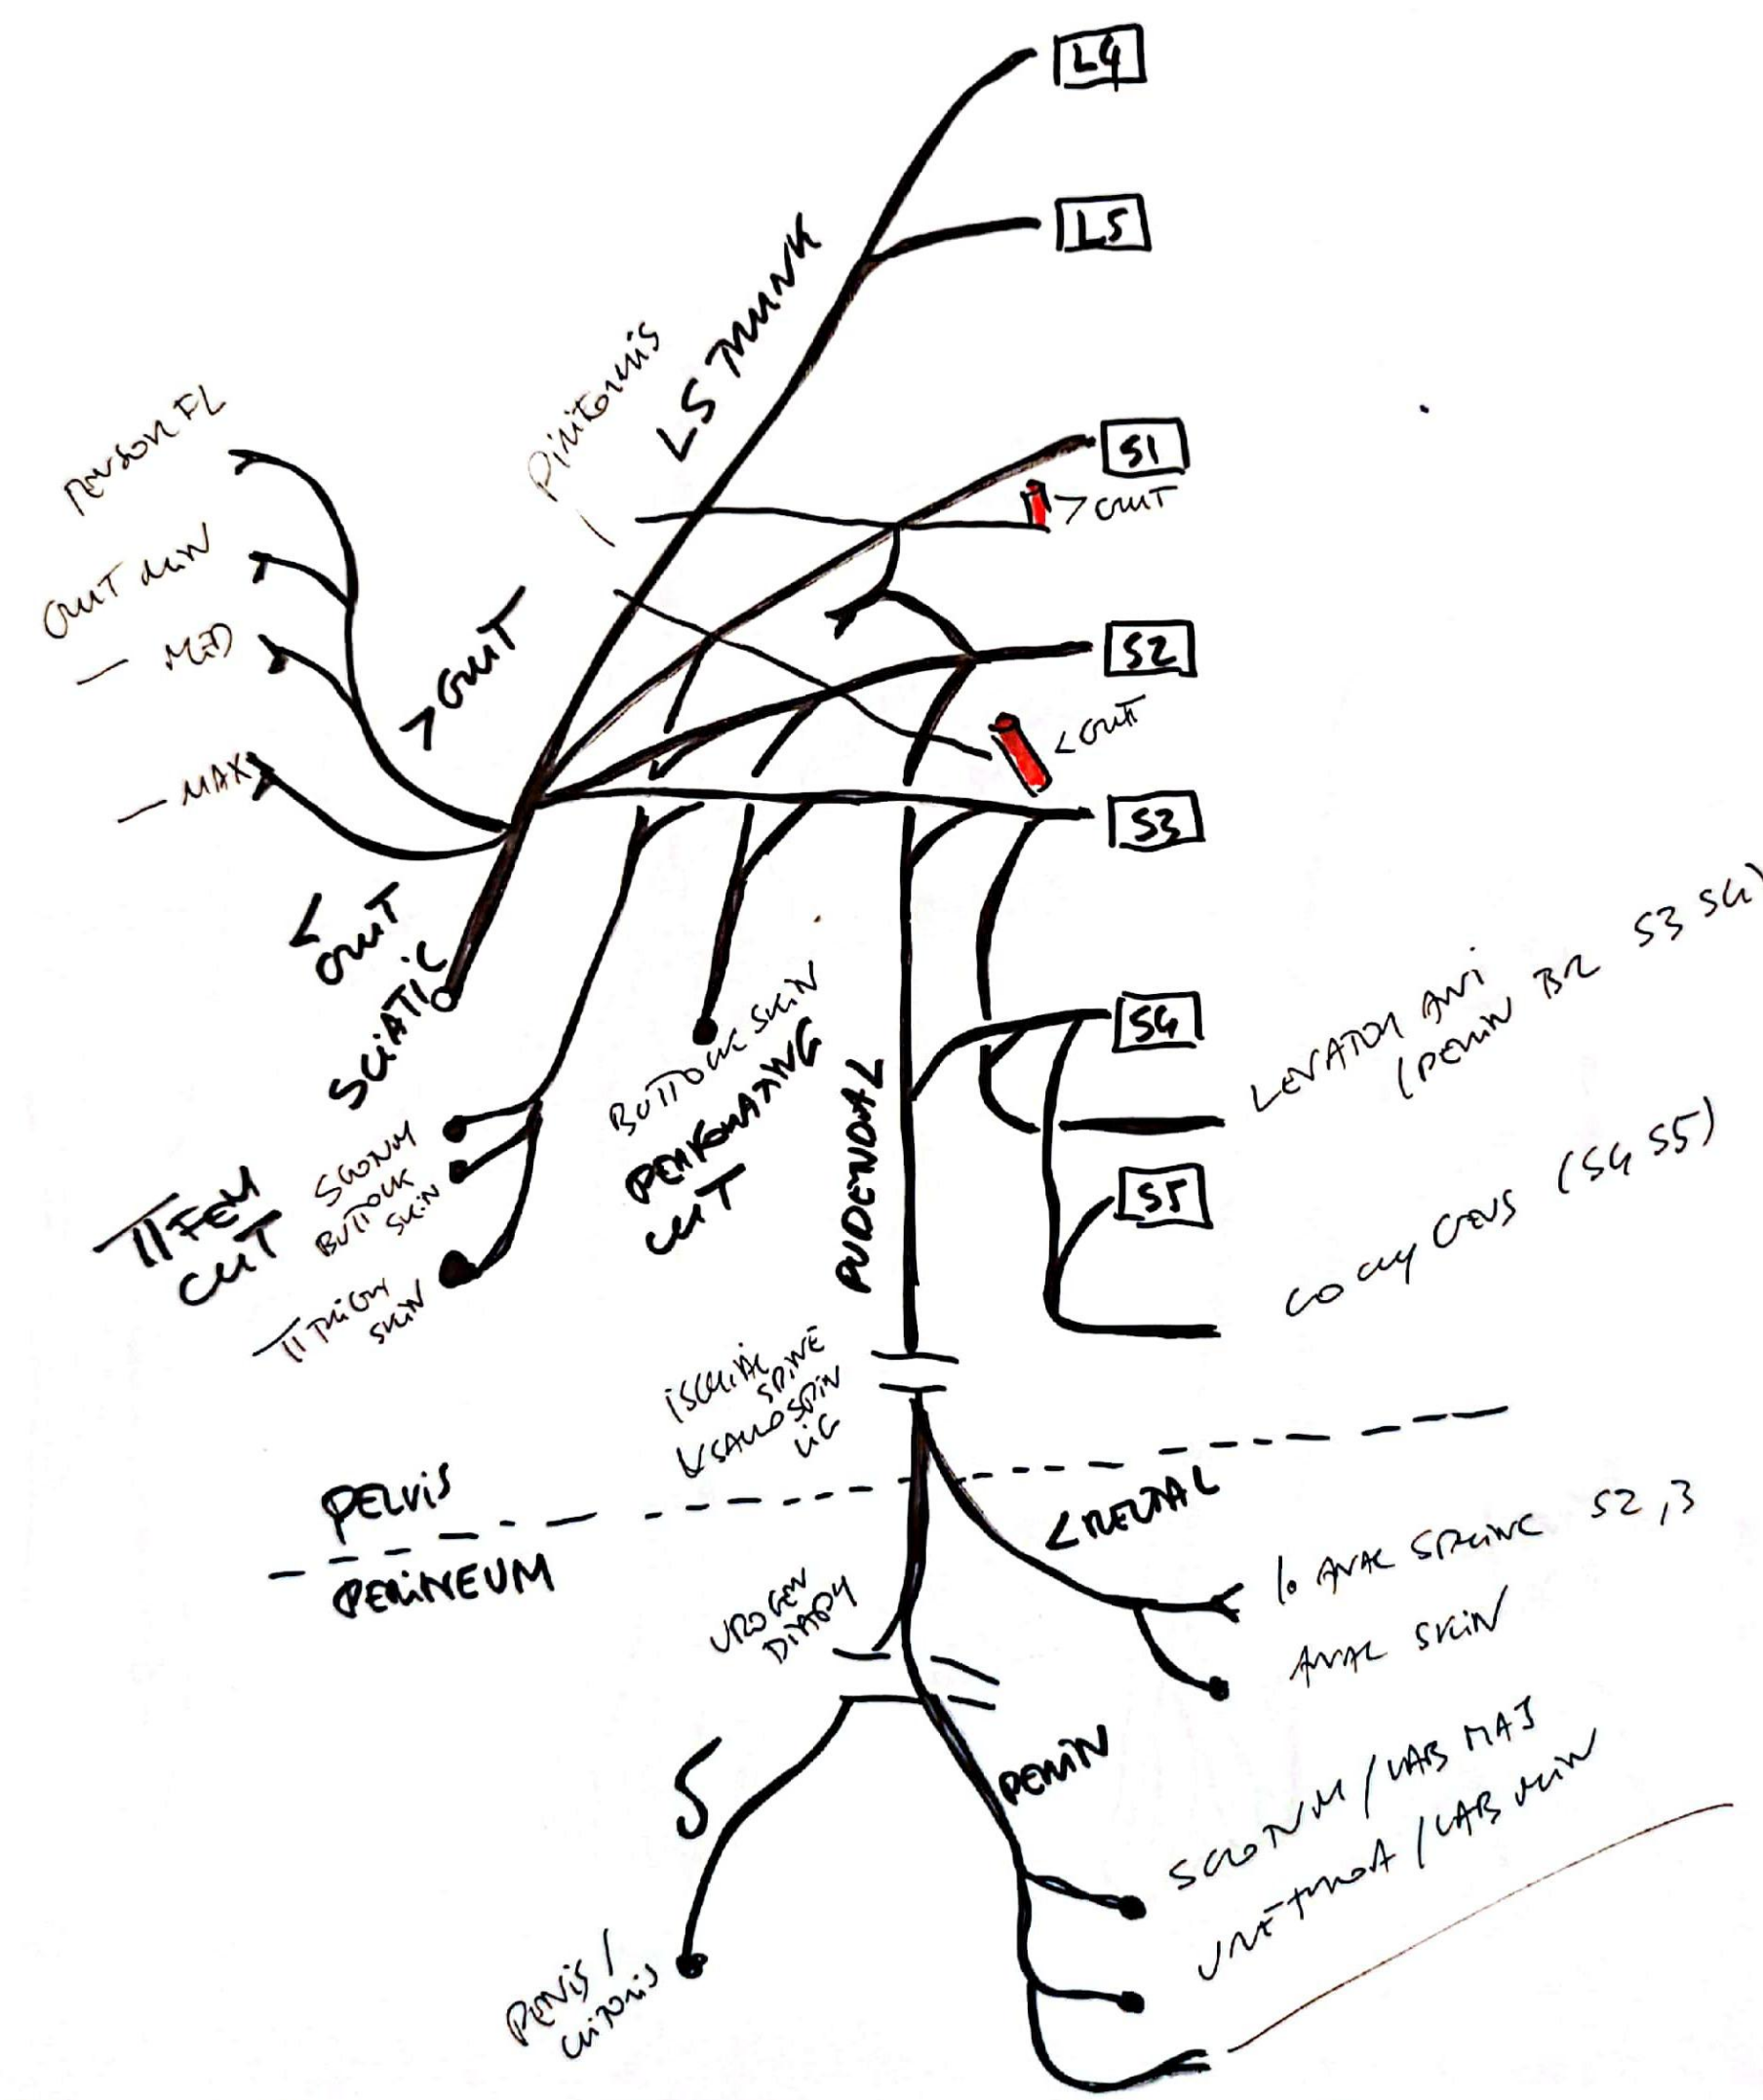 L4
L5
LS TRUNK
PIRIFORMIS
S1
> GLUT
TENSOR FL
GLUT MIN
— MED
— MAX
> GLUT
S2
< GLUT
S3
< GLUT
SCIATIC
LEVATOR ANI S3 S4
(PERIN BR
S4
BUTTOCK SKIN
PERFORATING
CUT
PUDENDAL
S5
COCCYGEUS (S4 S5)
SCROTUM
BUTTOCK
SKIN
FEM
CUT
THIGH
SKIN
ISCHIAL
SPINE
SACROSPIN
LIG
PELVIS
PERINEUM
< RECTAL
ANAL SPHINC S2,3
ANAL SKIN
UROGEN
DIAPH
PERIN
SCROTUM / LAB MAJ
URETHRA / LAB MIN
PENIS /
CLITORIS